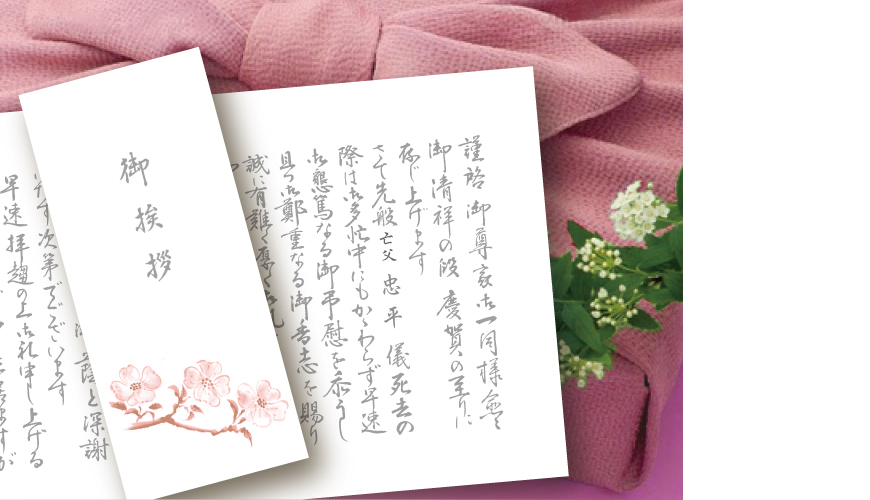 謹啓 御尊家御一同様愈々
御清祥の段 慶賀の至りに
存じ上げます
さて先般 亡父 忠平 儀 死去の
際は御多忙中にもかゝわらず早速
御懇篤なる御弔慰を忝うし
且つ御鄭重なる御香志を賜り
誠に有難く厚く御礼
御挨拶
蔭と深謝
す次第でございます
早速拝趨の上御礼申し上げる
ますが